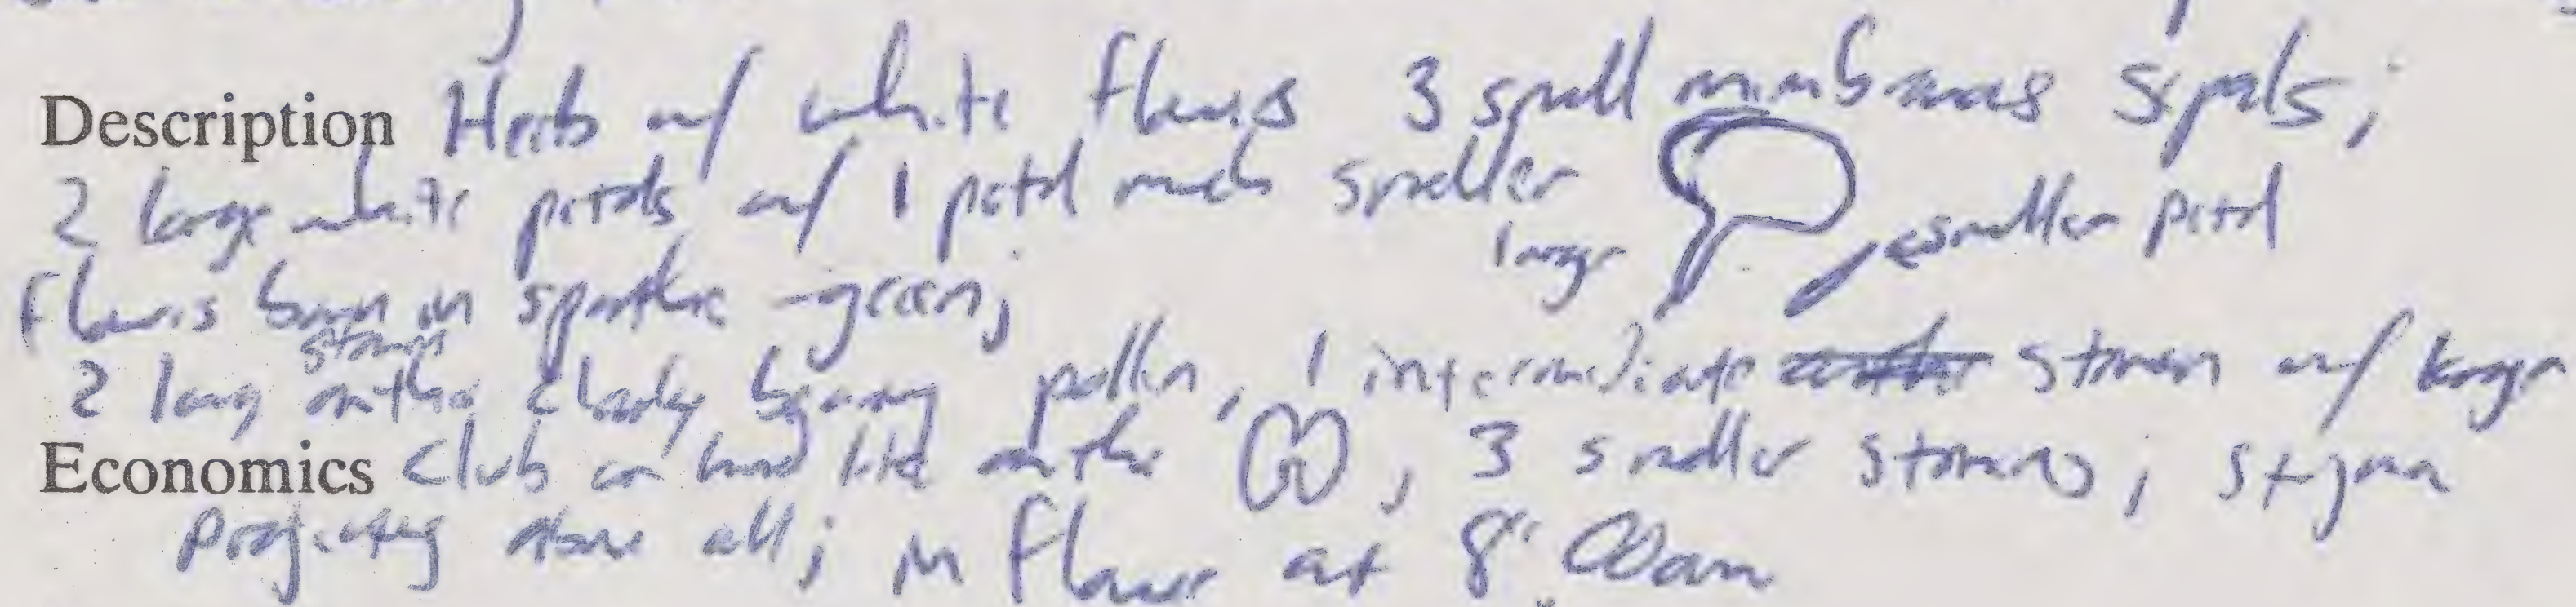 Description Herbs w/ white flowers 3 small membranous sepals;
2 large white petals w/ 1 petal much smaller
large smaller petal
flowers born in spathe - green;
stamen
2 long anther clearly bearing pollen, 1 intermediate stamen w/ larger
Economics club or like anther, 3 smaller stamens; stigma
projecting above all; in flower at 8:00am